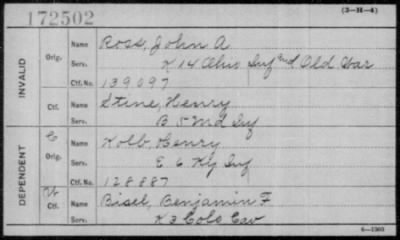 172502 (3-H-4)
INVALID
Orig.
Name Ross, John A
Serv. K 14 Ohio Inf and Old War
Ctf. No. 139097
Ctf.
Name Stine, Henry
Serv. B 5 Md Inf
DEPENDENT
Orig.
Name Kolb, Henry
Serv. E 6 Ky Inf
Ctf. No. 128887
Ctf.
Name Bisel, Benjamin F
Serv. K 3 Colo Cav